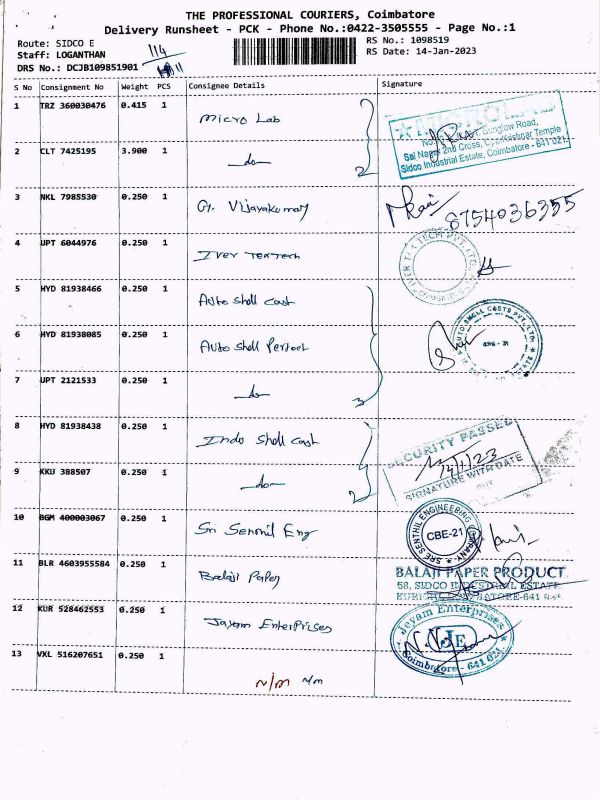 THE PROFESSIONAL COURIERS, Coimbatore
Delivery Runsheet - PCK - Phone No.:0422-3505555 - Page No.:1
Route: SIDCO E
RS No.: 1098519
Staff: LOGANTHAN
RS Date: 14-Jan-2023
DRS No.: DCJB109851901
114
11
S No Consignment No Weight PCS Consignee Details Signature
1 TRZ 360030476 0.415 1 Micro Lab
2 CLT 7425195 3.900 1 -do-
2
Sai Nagar 2nd Cross,
Sidco Industrial Estate, Coimbatore - 641 021.
3 NKL 7985530 0.250 1 G. Vijayakumar
8754036355
4 UPT 6044976 0.250 1
5 HYD 81938466 0.250 1 Auto Shell Cast
6 HYD 81938085 0.250 1 Auto Shell Perfect
AUTO SHELL CASTS PVT. LTD.
7 UPT 2121533 0.250 1 -do-
3
8 HYD 81938438 0.250 1 Indo Shell Cast
SECURITY PASSED
9 KKU 388507 0.250 1 -do-
2
SIGNATURE WITH DATE
10 BGM 400003067 0.250 1 Sri Senthil Eng
SRE SENTHIL ENGINEERING COMPANY
CBE-21
11 BLR 4603955584 0.250 1 Balaji Paper
BALAJI PAPER PRODUCT
58, SIDCO INDUSTRIAL ESTATE
12 KUR 528462553 0.250 1 Jayam Enterprises
Jeyam Enterprises
JE
Coimbatore - 641 021.
13 VXL 516207651 0.250 1
N/M N/M